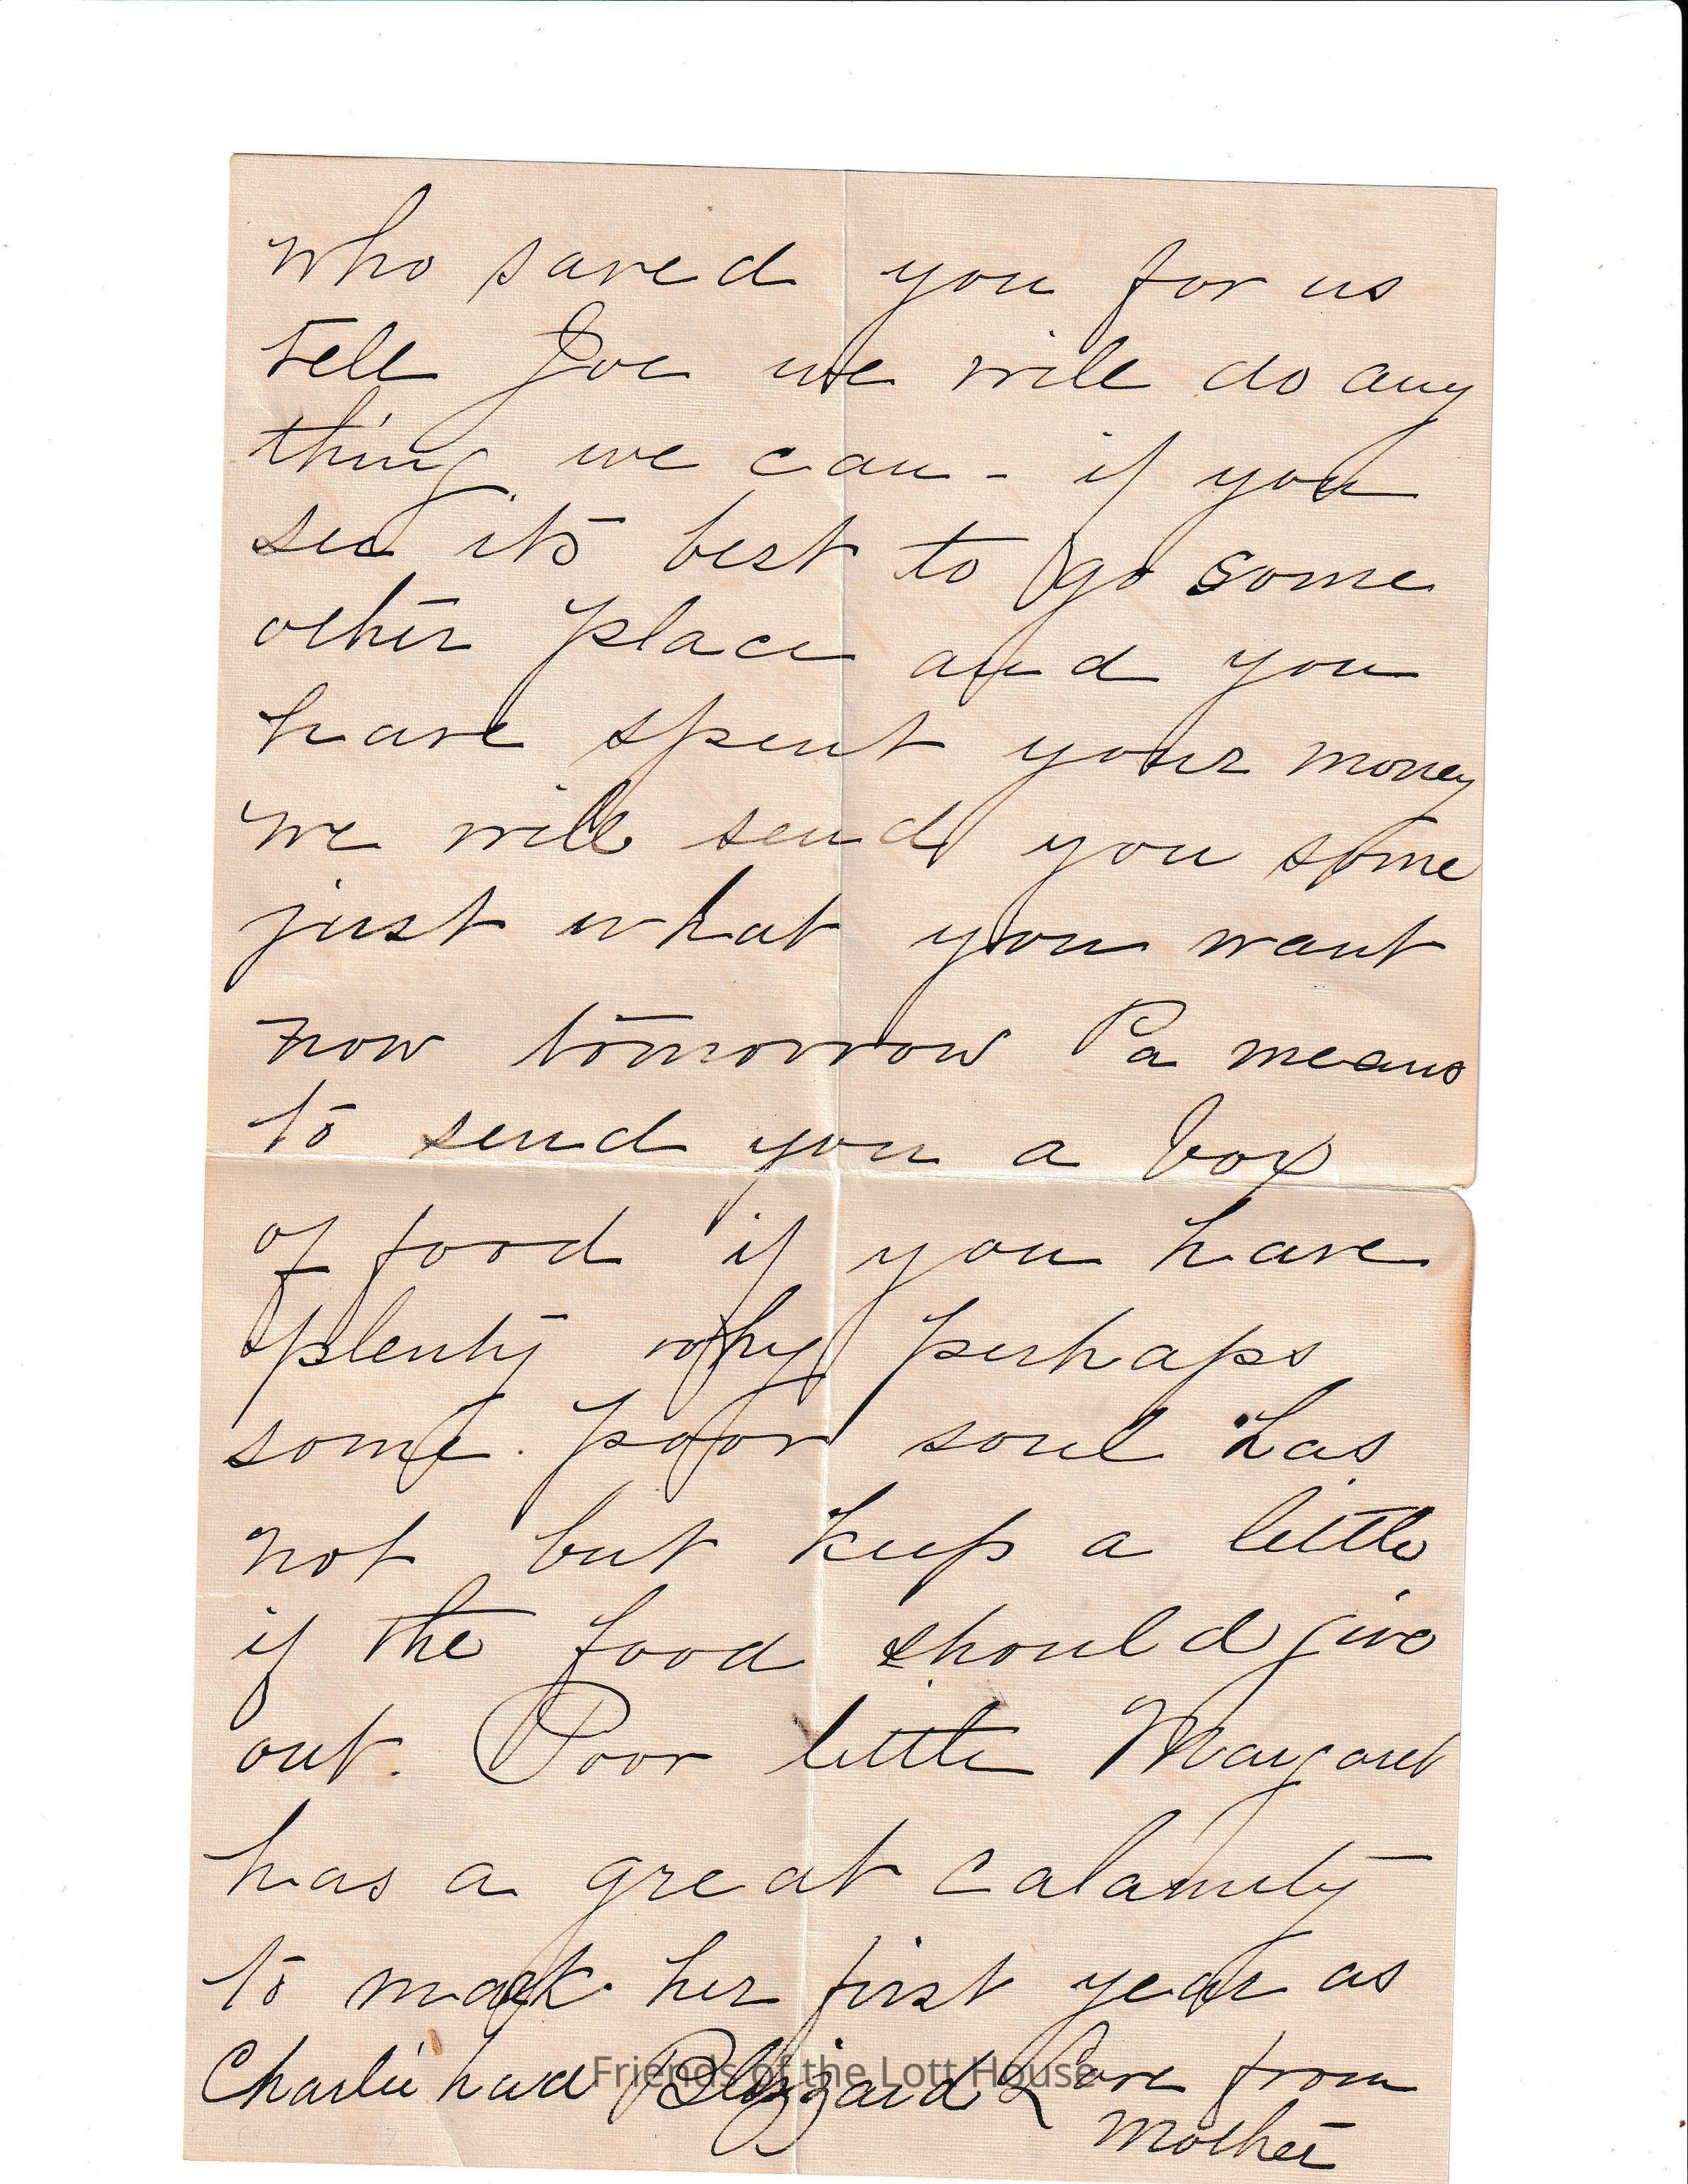 who saved you for us
tell Joe we will do any
thing we can - if you
see its best to go some
other place and you
have spent your money
we will send you some
just what you want
now tomorrow Pa means
to send you a box
of food if you have
plenty why perhaps
some poor soul has
not but keep a little
if the food should give
out. Poor little Margaret
has a great calamity
to mark her first year as
Charlie had Blizzard Love from
Mother
Friends of the Lott House